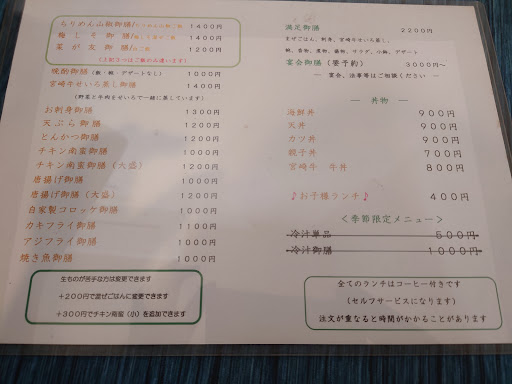 ちりめん山椒御膳 1400円
梅しそ御膳 1400円
菜が友御膳 1200円
(上記3つはご飯のみ違います)
晩酌御膳(飯・麺・デザートなし) 1000円
宮崎牛せいろ蒸し御膳 1400円
(野菜と牛肉をせいろで一緒に蒸しています)
お刺身御膳 1300円
天ぷら御膳 1200円
とんかつ御膳 1100円
チキン南蛮御膳 1000円
チキン南蛮御膳(大盛) 1200円
唐揚げ御膳 1000円
唐揚げ御膳(大盛) 1200円
自家製コロッケ御膳 1000円
カキフライ御膳 1100円
アジフライ御膳 1000円
焼き魚御膳 1000円
生ものが苦手な方は変更できます
+200円で混ぜごはんに変更できます
+300円でチキン南蛮(小)を追加できます
満足御膳 2200円
まぜごはん、刺身、宮崎牛せいろ蒸し、
宴会御膳(要予約) 3000円~
― 宴会、法事等はご相談ください ―
― 丼物 ―
海鮮丼 900円
天丼 900円
カツ丼 900円
親子丼 700円
宮崎牛 牛丼 800円
♪お子様ランチ♪ 400円
<季節限定メニュー>
冷汁単品 500円
冷汁御膳 1000円
全てのランチはコーヒー付きです
(セルフサービスになります)
注文が重なると時間がかかることがあります